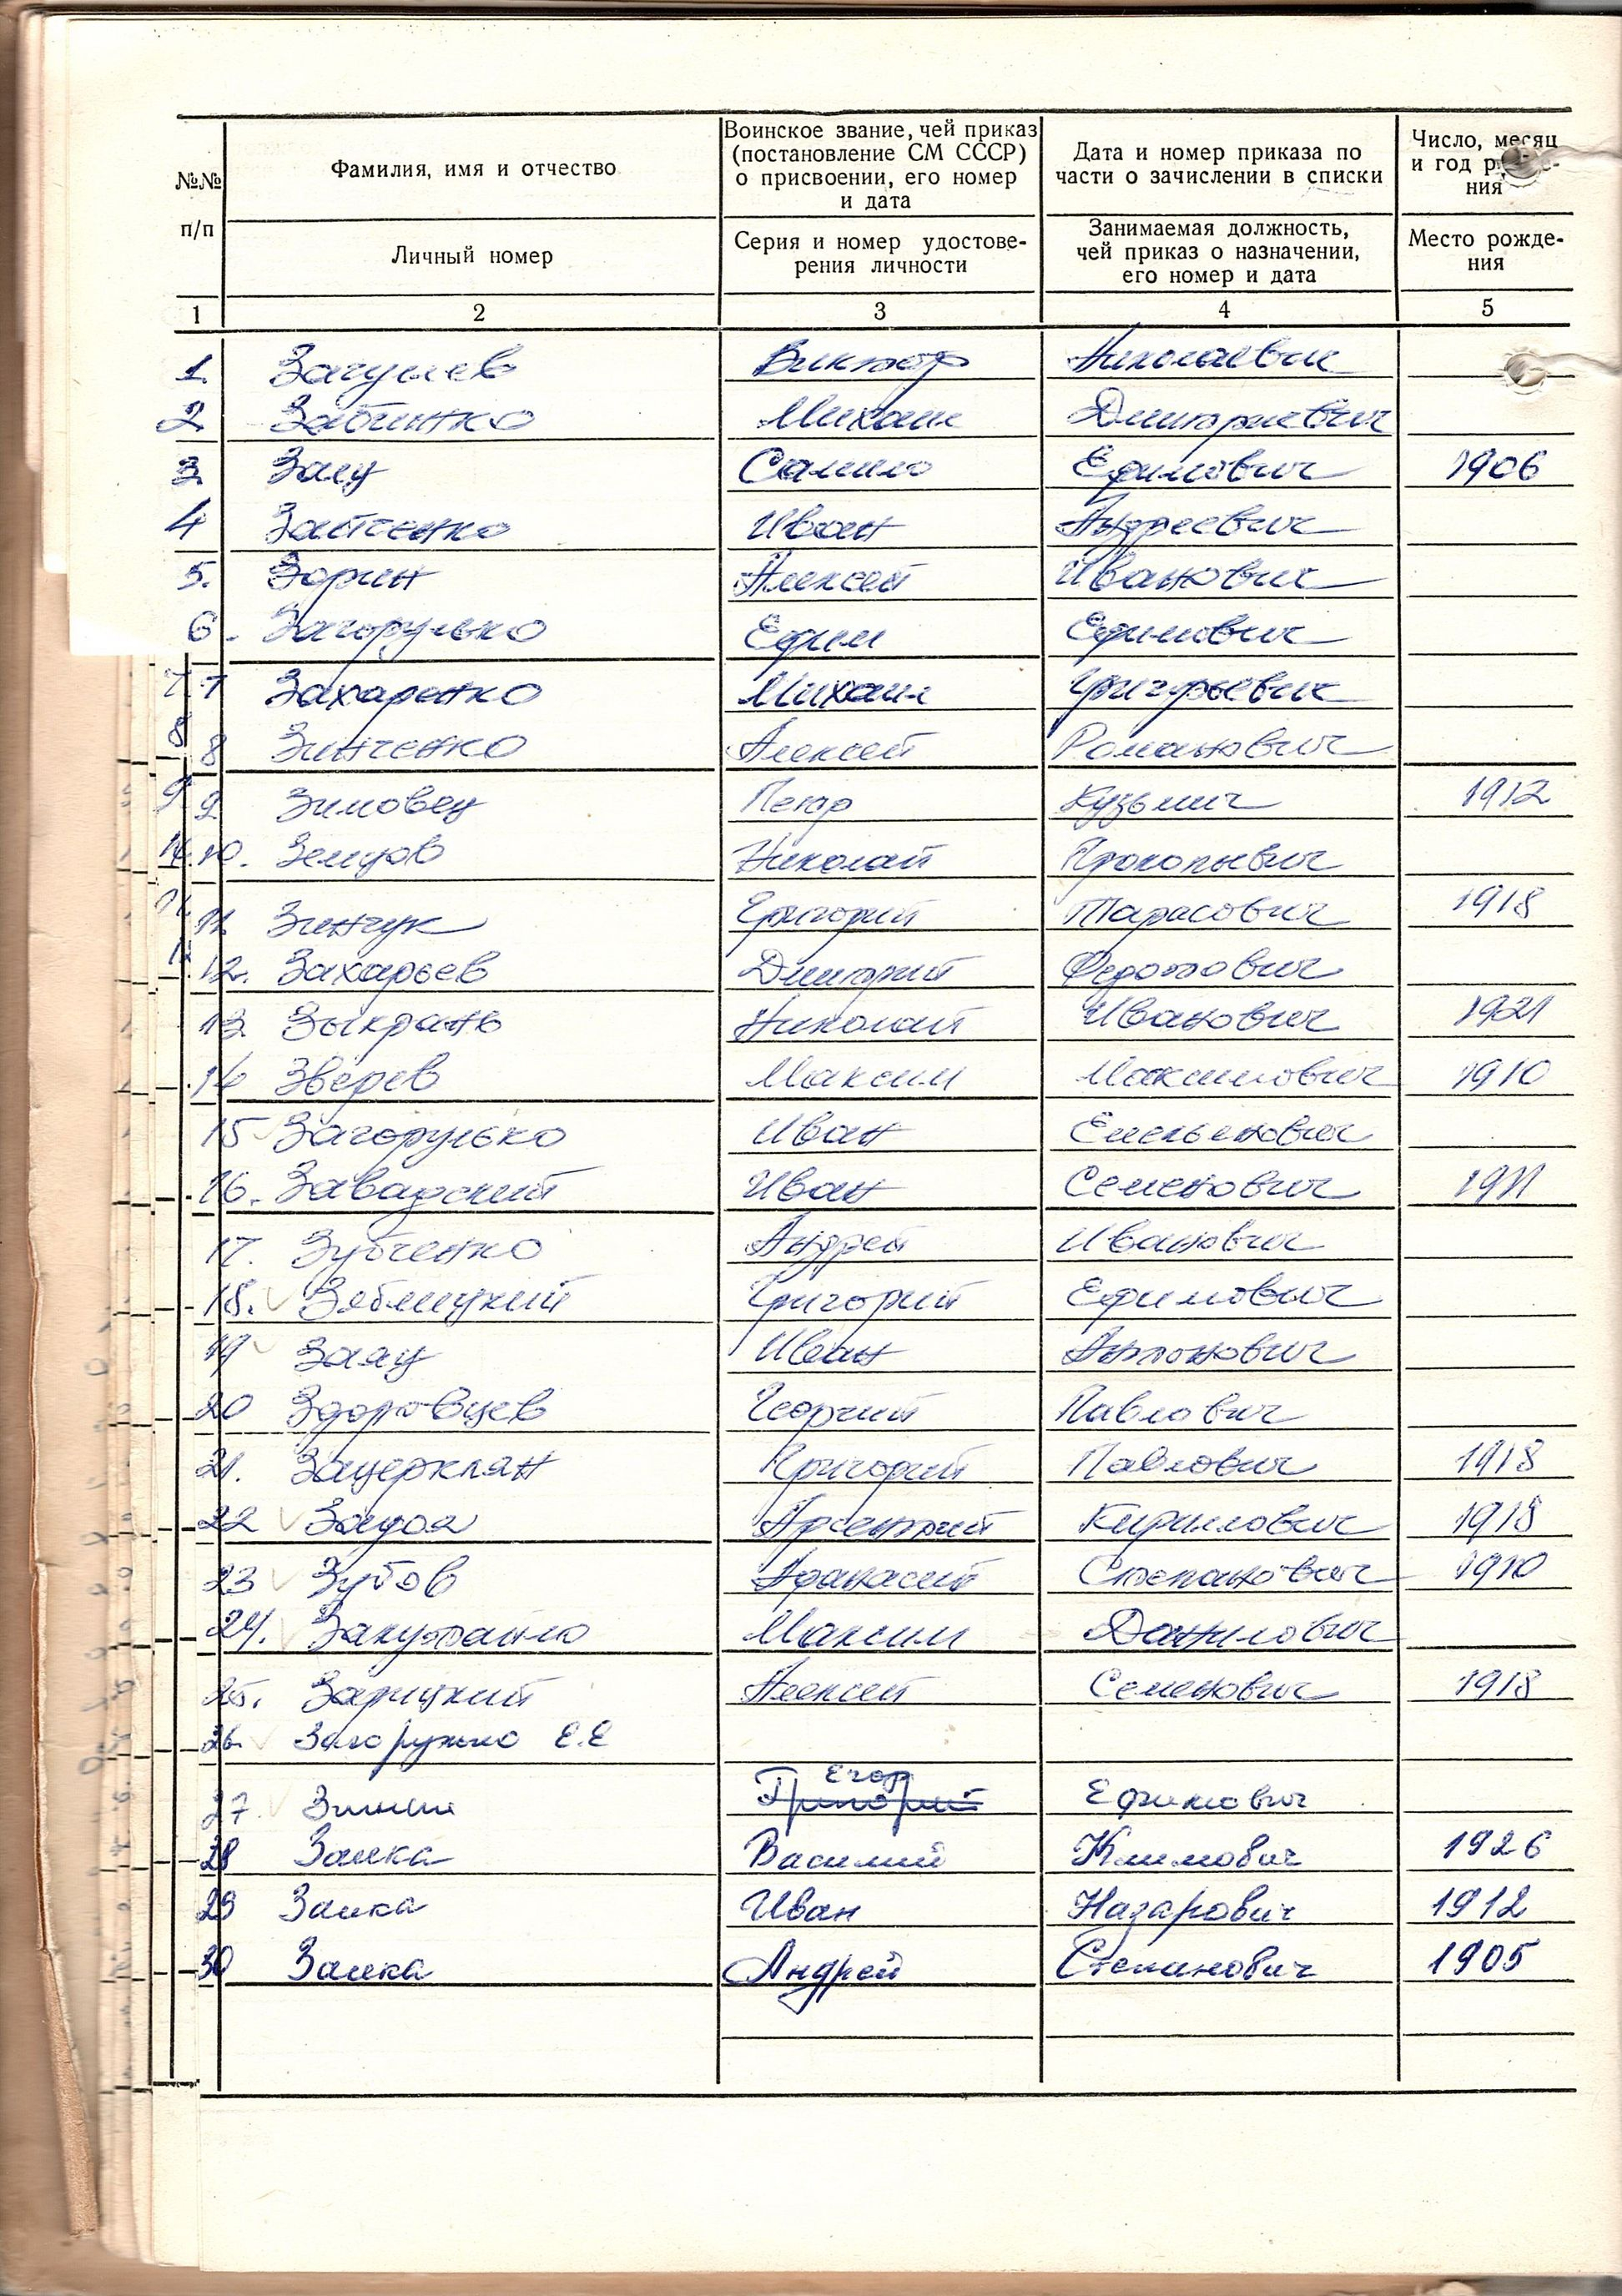 №№ п/п
Фамилия, имя и отчество
Воинское звание, чей приказ
(постановление СМ СССР)
о присвоении, его номер
и дата
Дата и номер приказа по
части о зачислении в списки
Число, месяц
и год рожде-
ния
Личный номер
Серия и номер удостове-
рения личности
Занимаемая должность,
чей приказ о назначении,
его номер и дата
Место рожде-
ния
1 2 3 4 5
1. Виктор Николаевич
2 Михаил Дмитриевич
3 Самило Ефимович 1906
4 Зайченко Иван Андреевич
5. Зорин Алексей Иванович
6. Загорулько Ефим Ефимович
7 7 Захаренко Михаил Григорьевич
8 8 Зинченко Алексей Романович
9 9 Зимовец Петр Кузьмич 1912
10. Земцов Николай Прокопьевич
11 11 Зинчук Григорий Тарасович 1918
12 12. Захарьев Дмитрий Федотович
13 Зыкрань Николай Иванович 1921
14 Зверев Максим Максимович 1910
15 Загорулько Иван Емельянович
16. Завадский Иван Семенович 1911
17. Зубченко Андрей Иванович
18. Зяблицкий Григорий Ефимович
19 Заяц Иван Антонович
20 Здоровцев Георгий Павлович
21. Зацерклян Григорий Павлович 1918
22 Арсентий Кириллович 1918
23 Зубов Афанасий Степанович 1910
24. Максим Данилович
25. Зарицкий Алексей Семенович 1918
26. Загорулько Е.Е
Егор
27. Зимин Григорий Ефимович
28 Заика Василий Климович 1926
29 Заика Иван Назарович 1912
30 Заика Андрей Степанович 1905